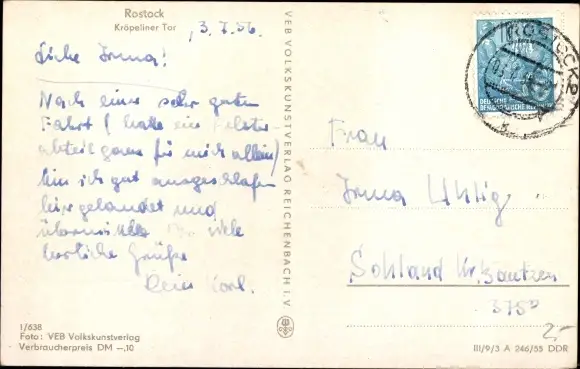 Rostock
Kröpeliner Tor
, 3. 7. 56.
Liebe Irma!
Nach einer sehr guten
Fahrt (hatte ein Polster-
abteil ganz für mich allein)
bin ich gut ausgeschlafen
hier gelandet und
übermittle Dir viele
herzliche Grüße
Dein Karl.
1/638
Foto: VEB Volkskunstverlag
Verbraucherpreis DM —,10
VEB VOLKSKUNSTVERLAG REICHENBACH I. V.
DEUTSCHE
DEMOKRATISCHE REPUBLIK
ROSTOCK
Frau
Irma Uhlig
Sohland Kr. Bautzen
375
2,-
III/9/3 A 246/55 DDR